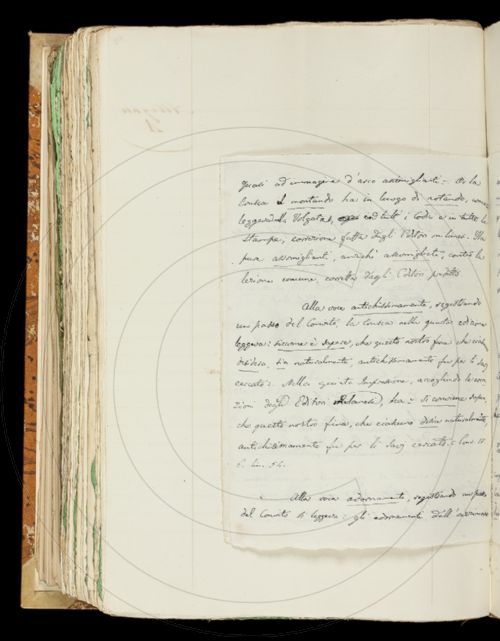 quasi ad immagine d'arco assimiglianti. Or la
Crusca il montando ha in luogo di rotando, come
leggevasi Volgata, coi tutt' i Codici e in tutte le
stampe, correzione fatta dagli Editori milanesi. Ha
pure assimiglianti, anzichè assomigliate, contro la
lezione comune, corretta dagli Editori predetti.
Alla voce antichissimamente, registrando
un passo del Convito, la Crusca nella quarta edizione
leggeva: siccome è sapere, che questo nostro fine che cias
disidera, sia naturalmente, antichissimamente fu per li Savj
cercato. Nella quinta Impressione, accogliendo le corre
zioni degli Editori milanesi, ha: si conviene sapere,
che questo nostro fine, che ciascuno disia naturalmente,
antichissimamente fu per li Savj cercato. Conv.
lin. 54.
Alla voce adornamente, registrando un passo
del Convito si leggeva: gli adornamenti dell'